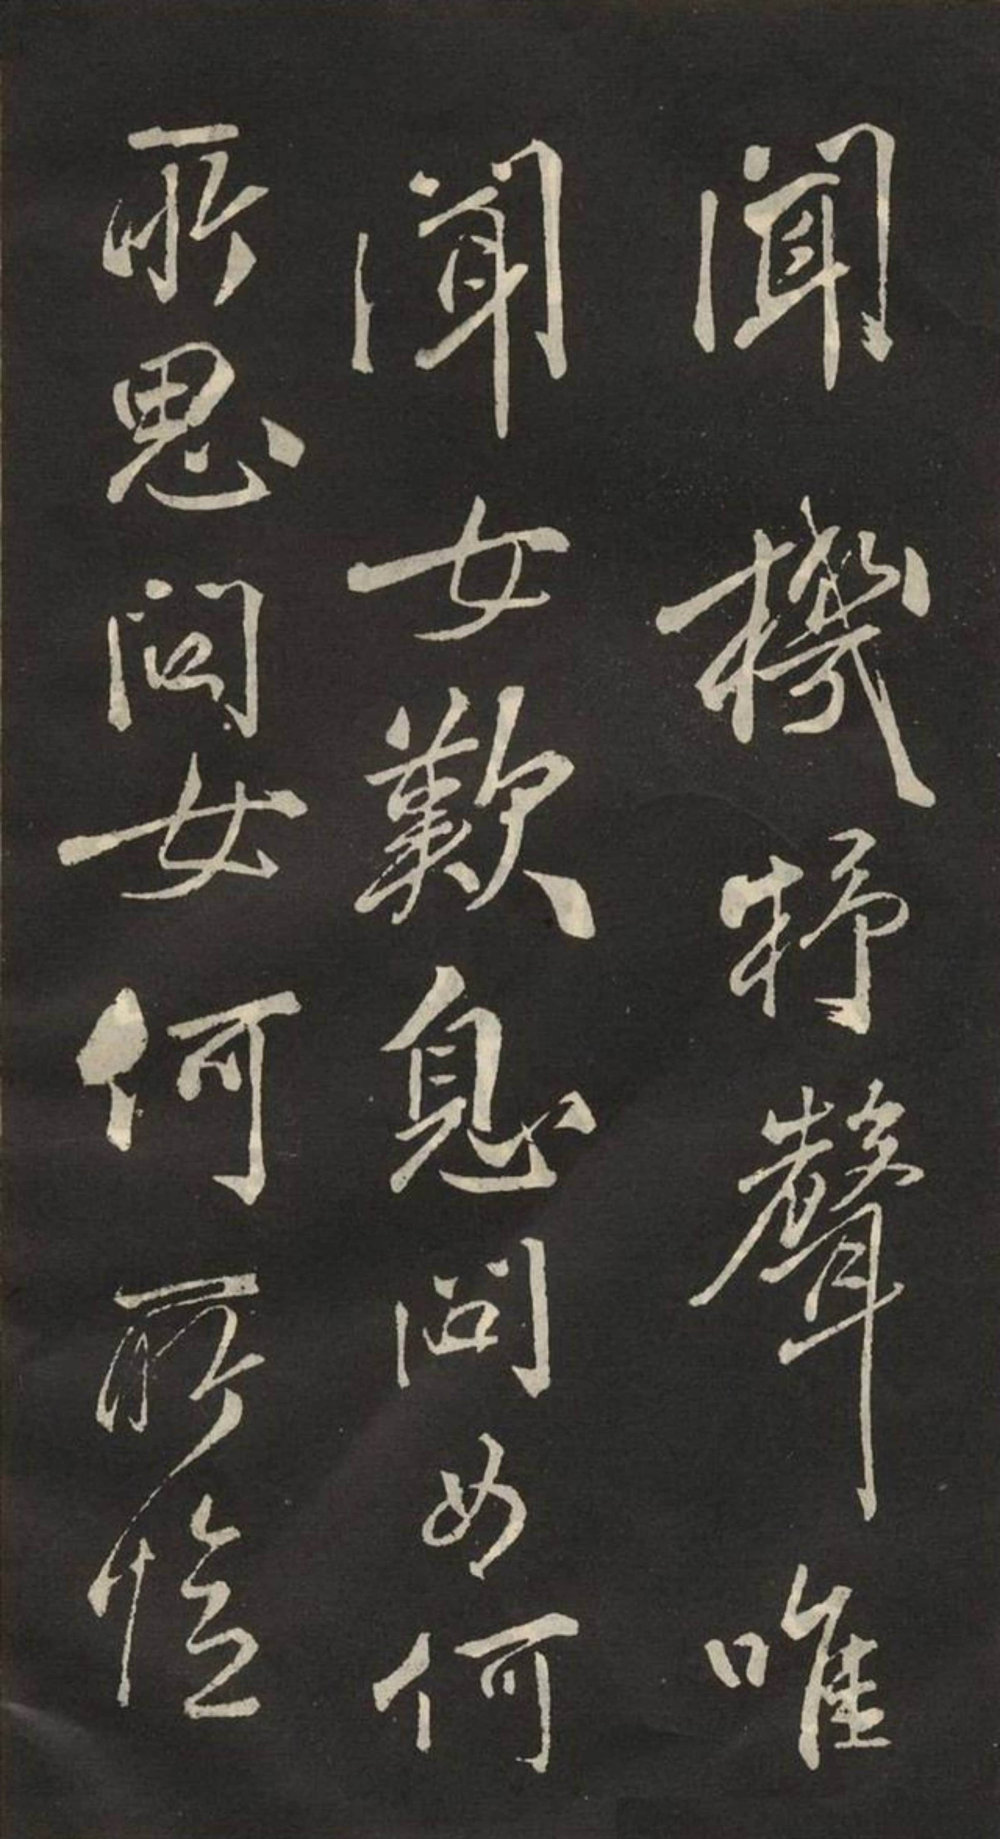 聞機杼聲唯
聞女歎息問女何
所思問女何所憶